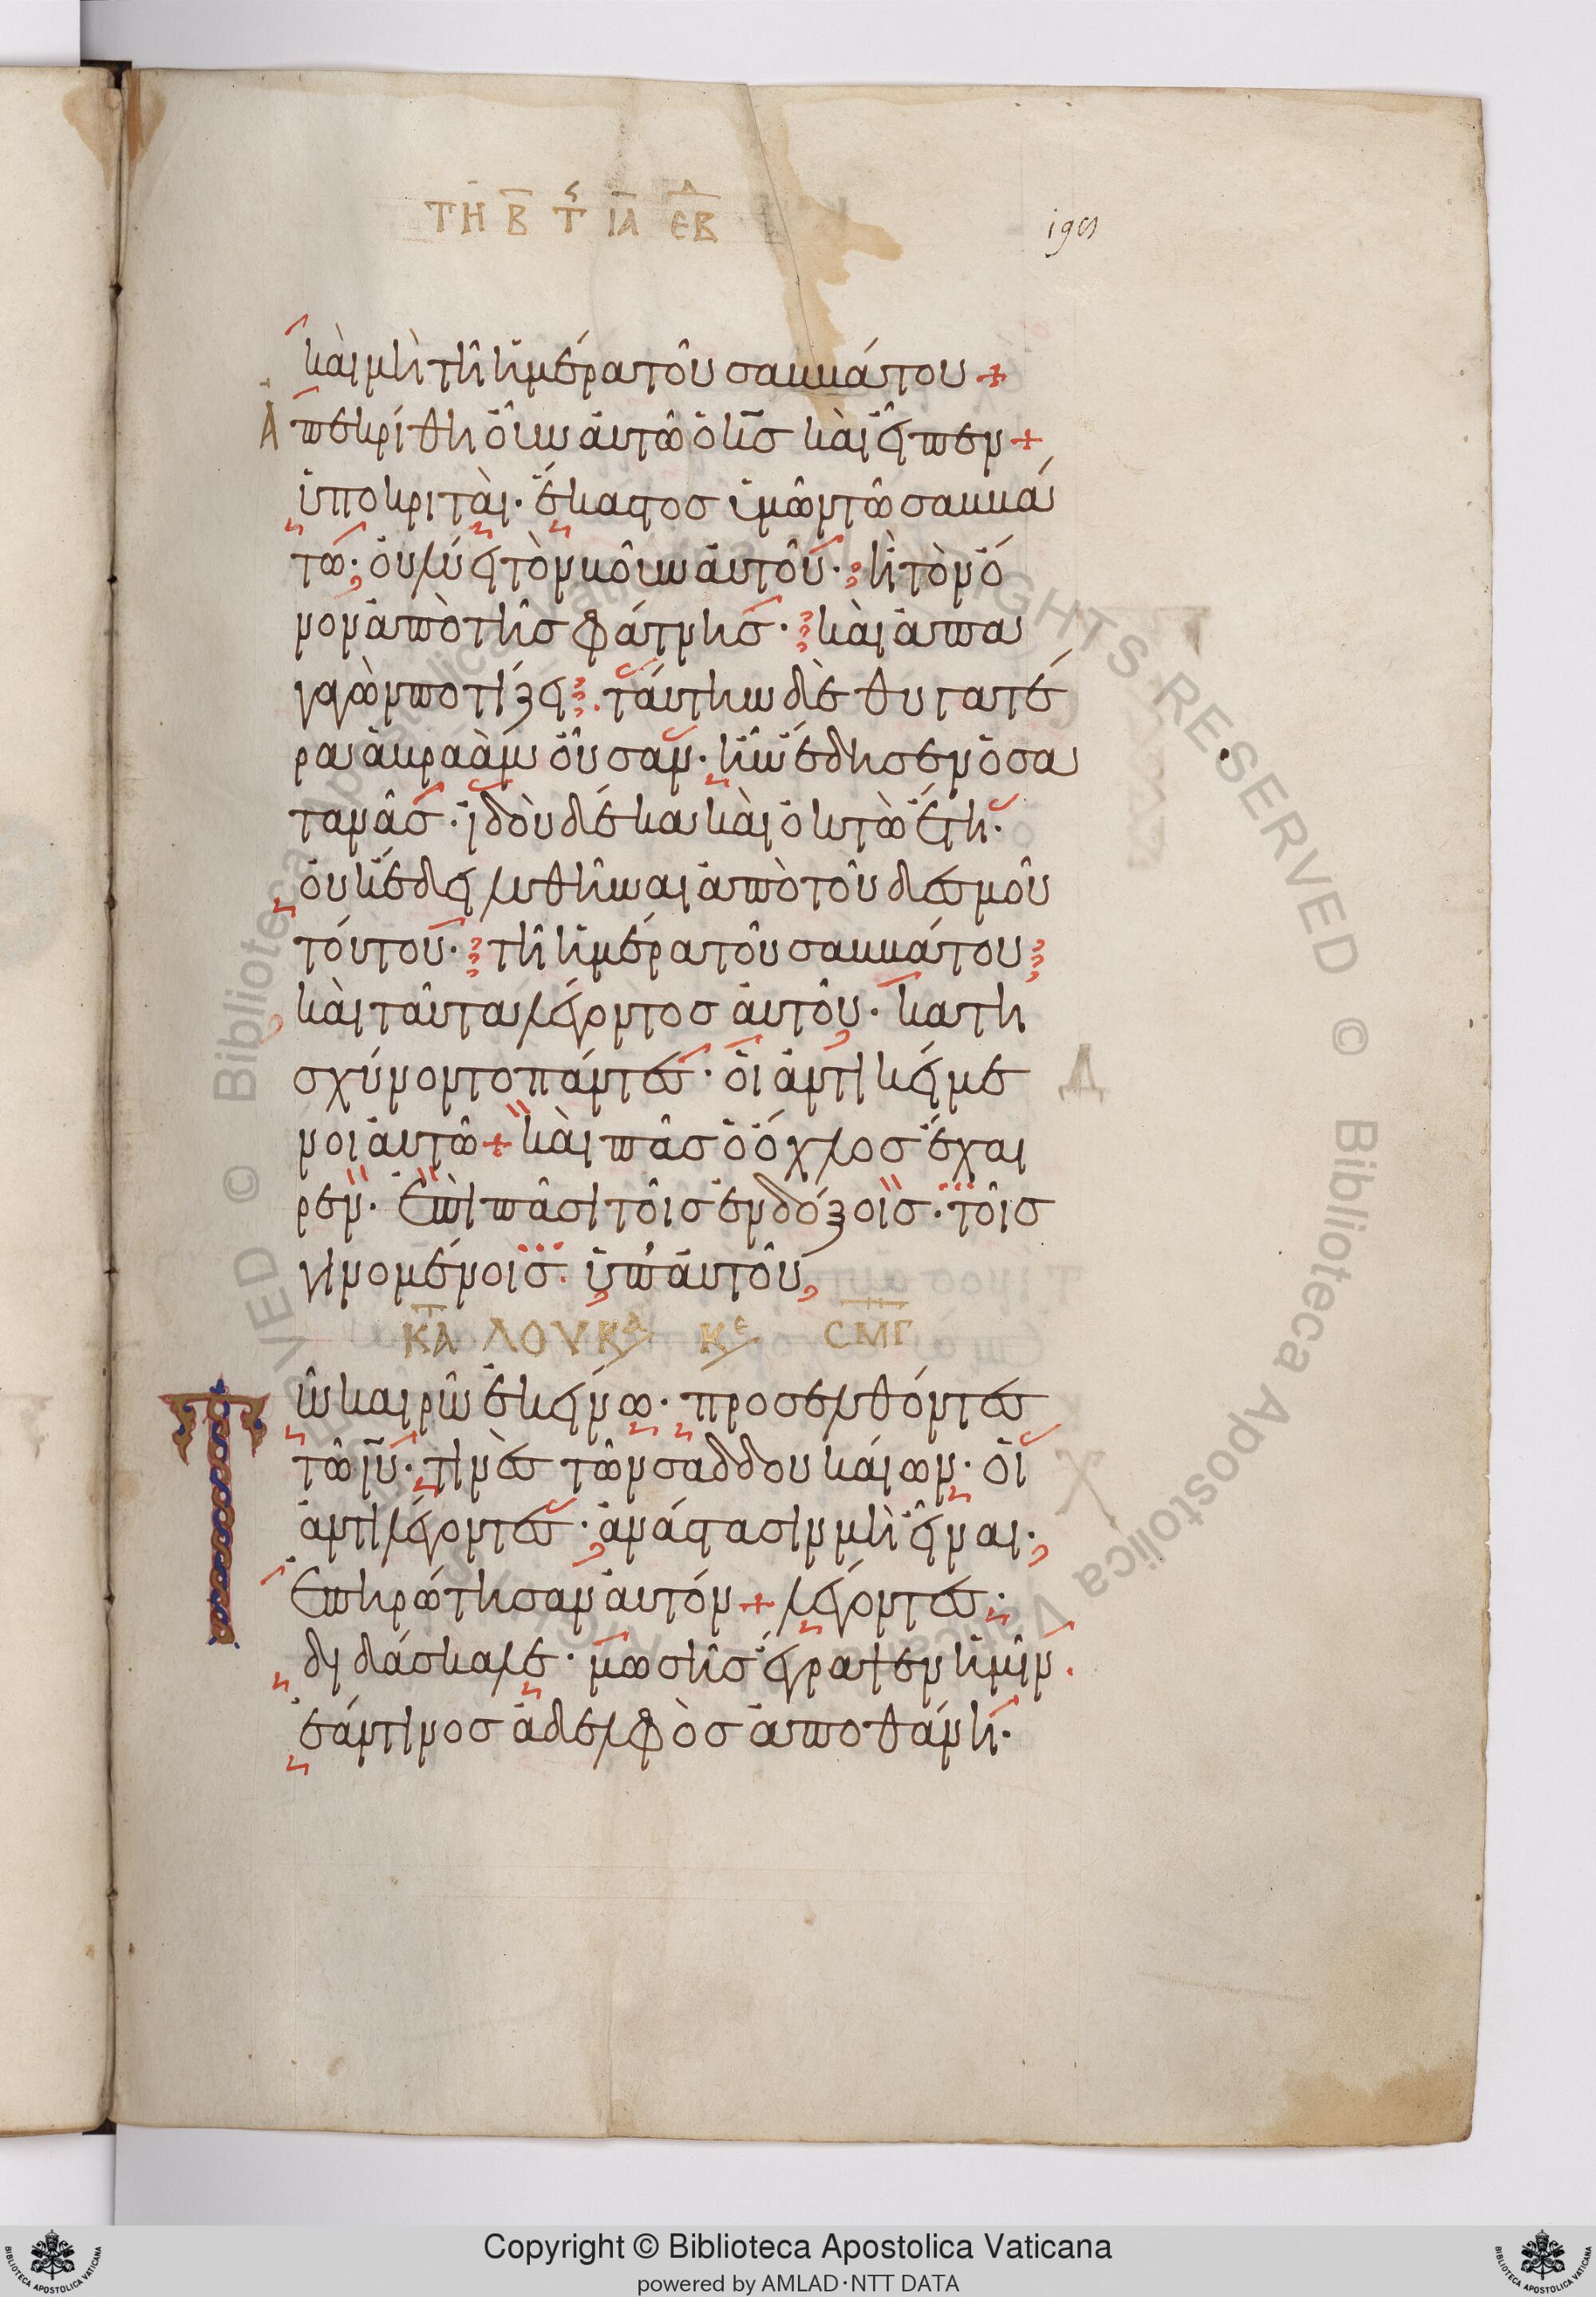 ΤΗ Β Τ ΙΑ ΕΒΔ
196
καὶ μὴ τῆ ἡμέρα τοῦ σαββάτου +
Ἀπεκρίθη οὖν αὐτῶ ὁ κ̅σ̅ καὶ εἶπεν +
ὑποκριταὶ· ἕκαστος ὑμῶν τῶ σαββά
τω· οὐ λύει τὸν βοῦν αὐτοῦ· ἢ τὸν ὄ
νον ἀπὸ τῆς φάτνης· καὶ ἀπα
γαγὼν ποτίζει· ταύτην δὲ θυγατέ
ρα ἀβραὰμ οὖσαν· ἣν ἔδησεν ὁ σα
τανᾶς· ἰδοὺ δέκα καὶ ὀκτὼ ἔτη·
οὐκ ἔδει λυθῆναι ἀπὸ τοῦ δεσμοῦ
τούτου· τῆ ἡμέρα τοῦ σαββάτου
καὶ ταῦτα λέγοντος αὐτοῦ· κατη
σχύνοντο πάντες· οἱ ἀντικείμε
νοι αὐτῶ + καὶ πᾶς ὁ ὄχλος ἔχαι
ρεν· ἐπὶ πᾶσι τοῖς ἐνδόξοις· τοῖς
γινομένοις· ὑπ' αὐτοῦ
ΚΑ̅Τ̅ ΛΟΥΚᾹ ΚΕ ΣΜΓ
Τῶ καιρῶ ἐκείνω· προσελθόντες
τῶ ι̅υ̅· τινὲς τῶν σαδδουκαίων· οἱ
ἀντιλέγοντες· ἀνάστασιν μὴ εἶναι·
ἐπηρώτησαν αὐτόν + λέγοντες·
διδάσκαλε· μωσῆς ἔγραψεν ἡμῖν·
ἐάν τινος ἀδελφὸς ἀποθάνη·